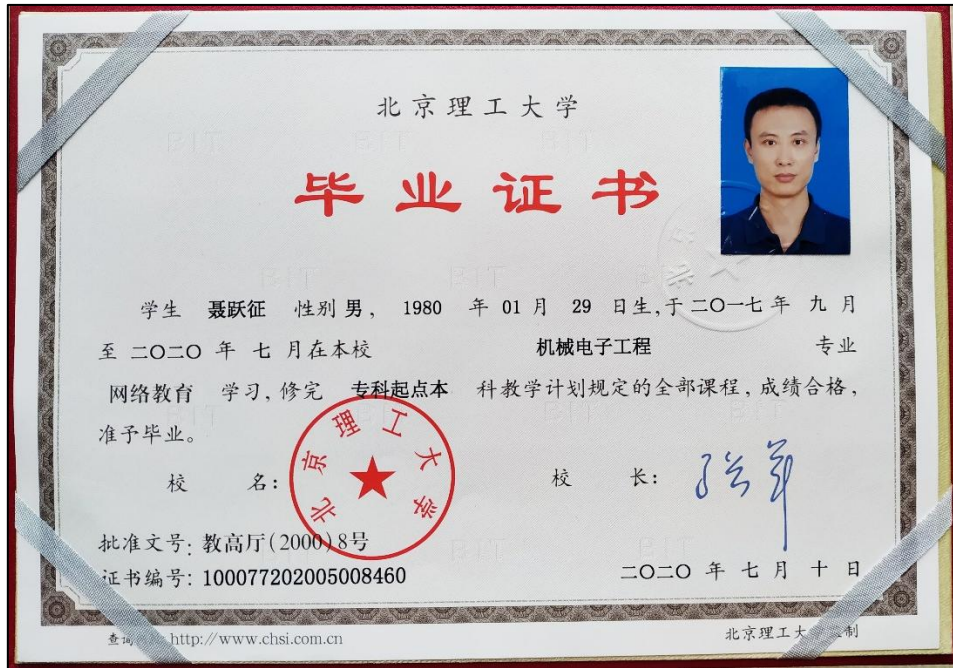 北京理工大学
毕业证书
学生 聂跃征 性别 男, 1980 年 01 月 29 日生,于二〇一七年 九 月
至 二〇二〇 年 七 月在本校 机械电子工程 专业
网络教育 学习,修完 专科起点本 科教学计划规定的全部课程,成绩合格,
准予毕业。
校 名: 校 长:
北京理工大学
批准文号: 教高厅(2000)8号
证书编号: 100077202005008460 二〇二〇 年 七 月 十 日
查询 http://www.chsi.com.cn 北京理工大 制
BIT BIT BIT
BIT BIT
BIT